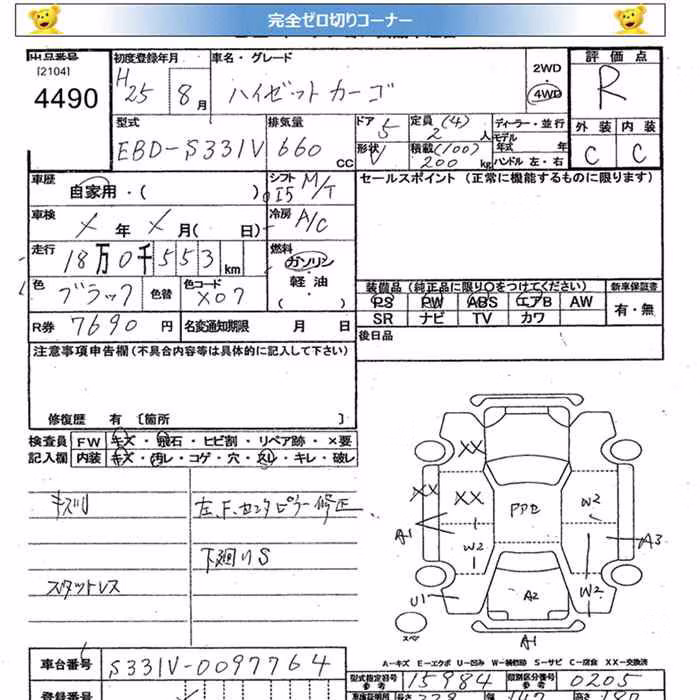 完全ゼロ切りコーナー
出品番号 初度登録年月 車名・グレード 2WD 評価点
[2104] H25 8月 ハイゼットカーゴ ・ R
4490 4WD
型式 排気量 ドア 5 定員 (4) 2 人 ディーラー・並行 外装 内装
EBD-S331V 660 CC 形状 V 積載 (100) 200 kg モデル年式 年 C C
ハンドル 左・右
車歴 自家用・( ) シフト I5 M/T セールスポイント (正常に機能するものに限ります)
車検 X 年 X 月( 日) 冷房 A/C
走行 18万0千553 km 燃料 ガソリン・軽油・( )
色 ブラック 色替 色コード X07 装備品 (純正品に限り○をつけてください) 新車保証書
PS PW ABS エアB AW 有・無
R券 7690円 名変通知期限 月 日 SR ナビ TV カワ
注意事項申告欄 (不具合内容等は具体的に記入して下さい) 後日品
修復歴 有 [箇所 ]
検査員 FW キズ・飛石・ヒビ割・リペア跡・×要
記入欄 内装 キズ・汚レ・コゲ・穴・スレ・キレ・破レ
左.F.センタピラー修正
下廻りS
スタットレス
XX
XX XX PPE W2
A1 W2 A3
U1 A2 W2
スペア A1
A-キズ E-エクボ U-凹み W-補修跡 S-サビ C-腐食 XX-交換済
車台番号 S331V-0097764
型式指定番号 15984 類別区分番号 0205
登録番号 車庫証明用参考 長さ 幅 高さ